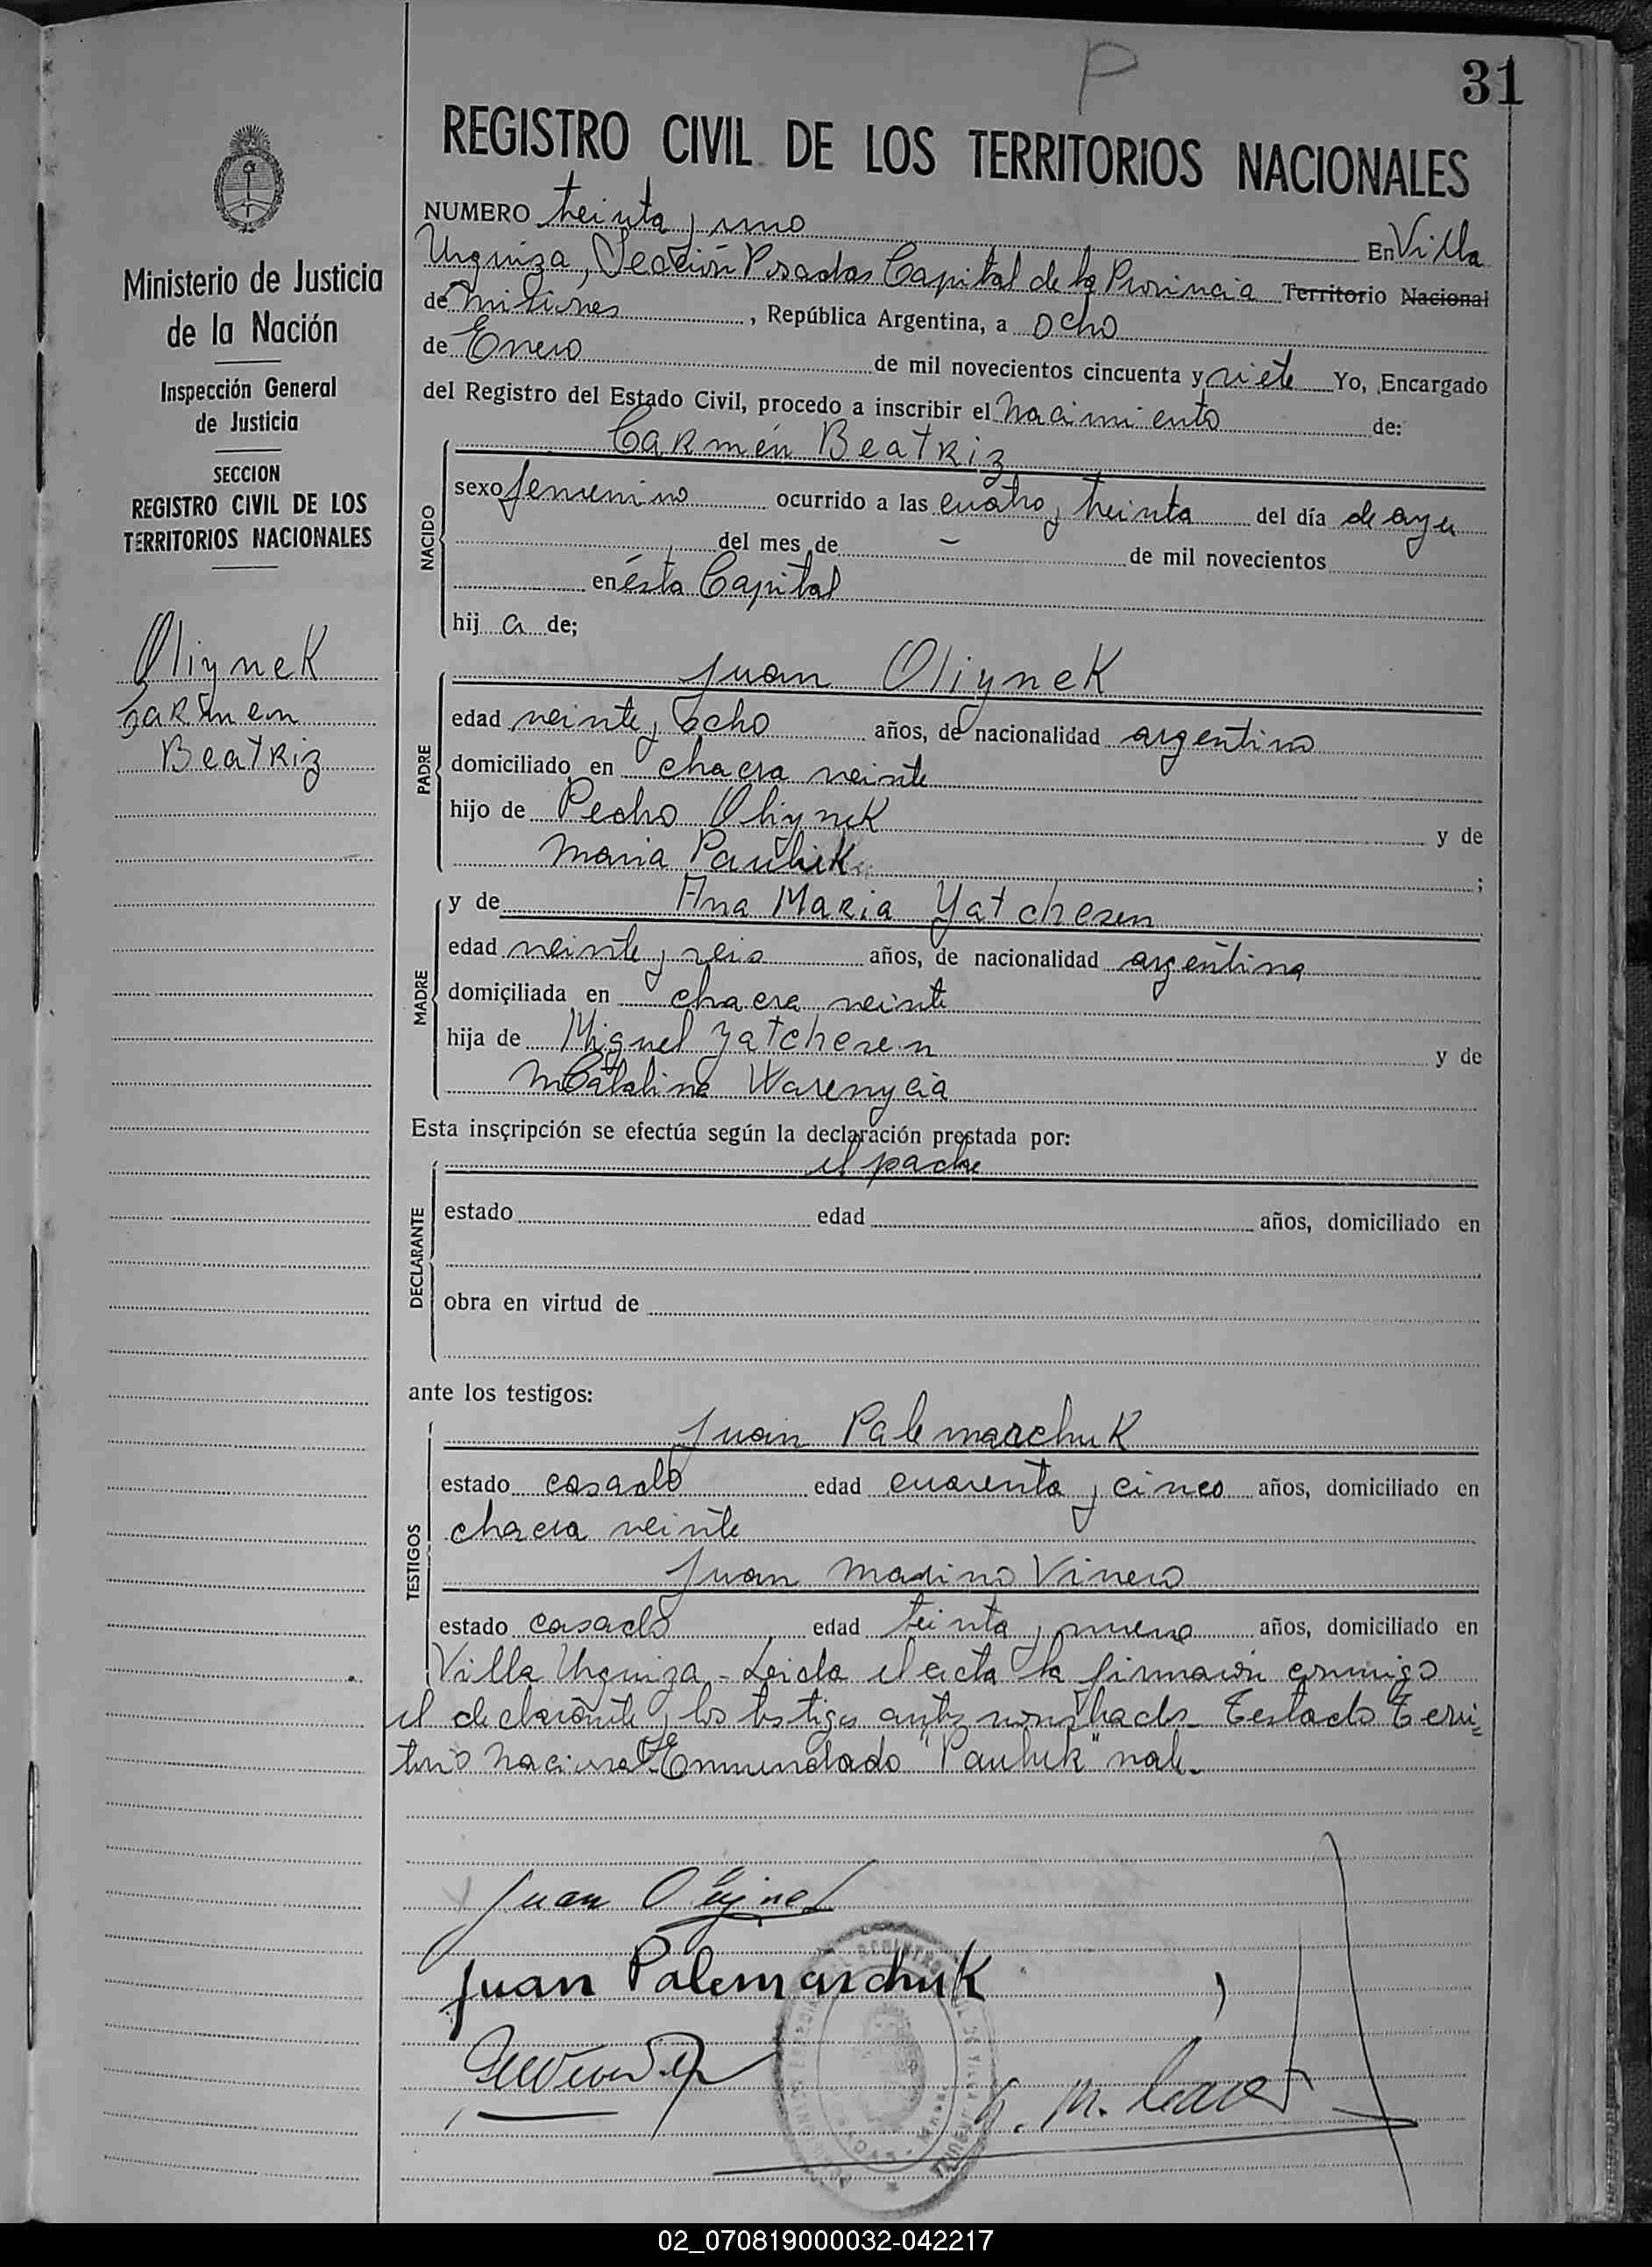 P
31
REGISTRO CIVIL DE LOS TERRITORIOS NACIONALES
Ministerio de Justicia
de la Nación
Inspección General
de Justicia
SECCION
REGISTRO CIVIL DE LOS
TERRITORIOS NACIONALES
Oliynek
Carmen
Beatriz
NUMERO treinta y uno En Villa
Urquiza, Sección Posadas Capital de la Provincia Territorio Nacional
de Misiones, República Argentina, a ocho
de Enero de mil novecientos cincuenta y siete Yo, Encargado
del Registro del Estado Civil, procedo a inscribir el Nacimiento de:
Carmen Beatriz
NACIDO
sexo femenino ocurrido a las cuatro y treinta del día de ayer
del mes de — de mil novecientos
en ésta Capital
hij a de;
Juan Oliynek
PADRE
edad veinte y ocho años, de nacionalidad argentino
domiciliado en chacra veinte
hijo de Pedro Oliynek y de
Maria Pauluk ;
y de Ana Maria Yatchesen
MADRE
edad veinte y seis años, de nacionalidad argentina
domiciliada en chacra veinte
hija de Miguel Yatchesen y de
Catalina Warenycia
Esta inscripción se efectúa según la declaración prestada por:
el padre
DECLARANTE
estado edad años, domiciliado en
obra en virtud de
ante los testigos:
Juan Palemarchuk
TESTIGOS
estado casado edad cuarenta y cinco años, domiciliado en
chacra veinte
Juan Vivero
estado casado edad treinta y nueve años, domiciliado en
Villa Urquiza - Leida el acta la firmaron conmigo
el declarante y los testigos antes nombrados - Testado "Terri=
torio Nacional" Enmendado "Pauluk" vale.
Juan Oliynek
Juan Palemarchuk
02_070819000032-042217